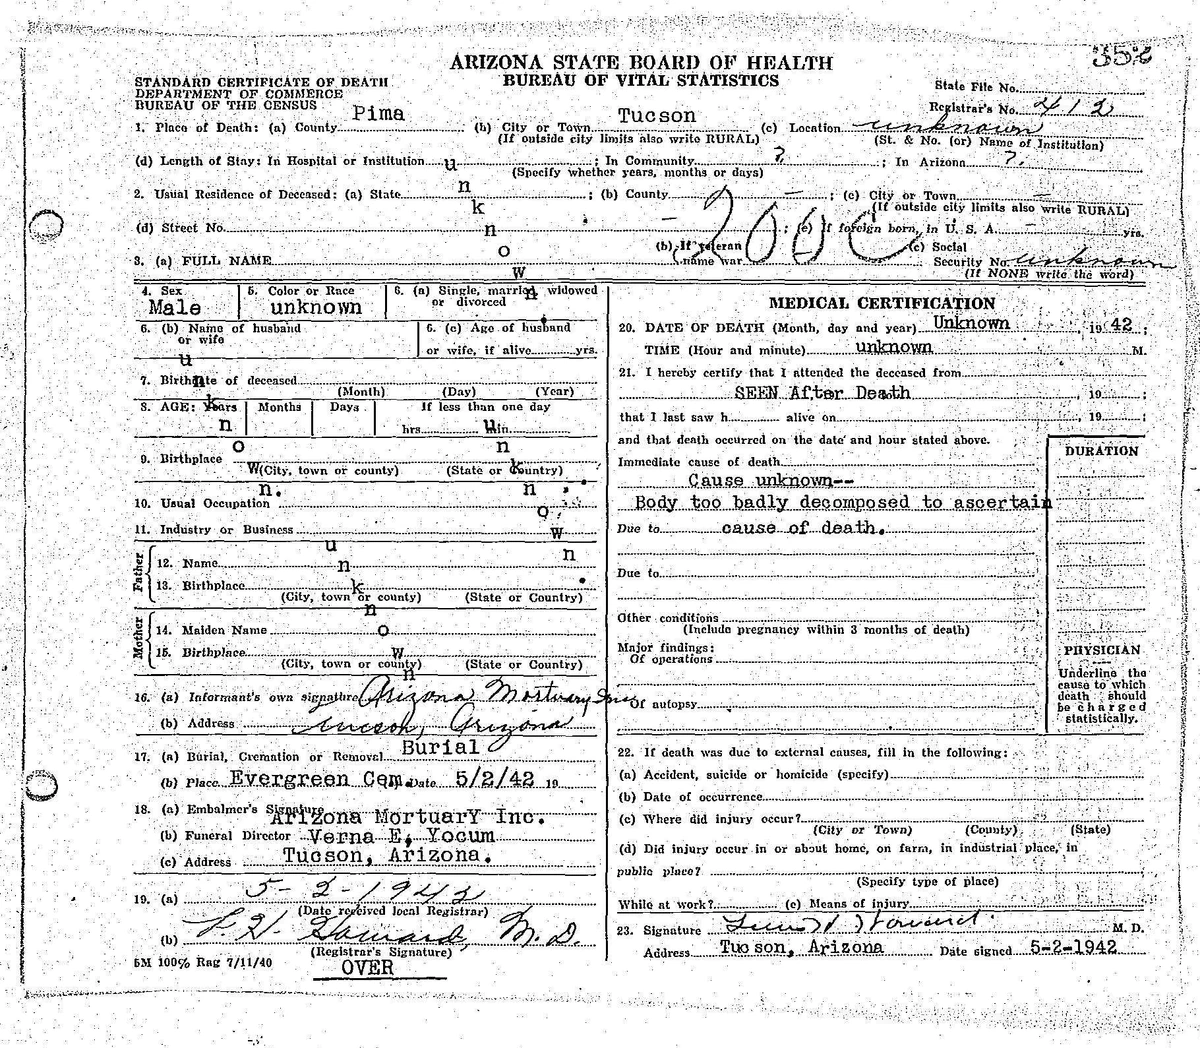 352
ARIZONA STATE BOARD OF HEALTH
BUREAU OF VITAL STATISTICS
STANDARD CERTIFICATE OF DEATH
DEPARTMENT OF COMMERCE
BUREAU OF THE CENSUS
State File No.
Registrar's No. 412
1. Place of Death: (a) County Pima (b) City or Town Tucson (c) Location unknown
(If outside city limits also write RURAL) (St. & No. (or) Name of Institution)
(d) Length of Stay: In Hospital or Institution u ; In Community ? ; In Arizona ?
(Specify whether years, months or days)
n
2. Usual Residence of Deceased: (a) State ; (b) County — ; (c) City or Town —
k (If outside city limits also write RURAL)
(d) Street No. n — ; (e) If foreign born, in U. S. A. — yrs.
200
o
3. (a) FULL NAME (b) If veteran name war (c) Social Security No. unknown
w (If NONE write the word)
n
4. Sex Male
5. Color or Race unknown
6. (a) Single, married, widowed or divorced
6. (b) Name of husband or wife
6. (c) Age of husband or wife, if alive yrs.
u
n
7. Birthdate of deceased
(Month) (Day) (Year)
k
8. AGE: Years Months Days If less than one day
n hrs. u min.
o n
9. Birthplace
w (City, town or county) (State or Country) k
n. n
10. Usual Occupation
o
11. Industry or Business w
u n
Father
12. Name n
13. Birthplace k
(City, town or county) (State or Country)
n
Mother
14. Maiden Name o
15. Birthplace w
(City, town or county) (State or Country)
n
16. (a) Informant's own signature Arizona Mortuary Inc
(b) Address Tucson, Arizona
17. (a) Burial, Cremation or Removal Burial
(b) Place Evergreen Cem. Date 5/2/42 19
18. (a) Embalmer's Signature
Arizona MortuarY Inc.
(b) Funeral Director Verna E, Yocum
(c) Address Tucson, Arizona.
19. (a) 5-2-1942
(Date received local Registrar)
(b) L. H. Howard, M. D.
(Registrar's Signature)
5M 100% Rag 7/11/40
OVER
MEDICAL CERTIFICATION
20. DATE OF DEATH (Month, day and year) Unknown , 19 42 ;
TIME (Hour and minute) unknown M.
21. I hereby certify that I attended the deceased from
SEEN After Death , 19 ;
that I last saw h alive on , 19 ;
and that death occurred on the date and hour stated above.
DURATION
Immediate cause of death
Cause unknown--
Body too badly decomposed to ascertain
Due to cause of death.
Due to
Other conditions
(Include pregnancy within 3 months of death)
Major findings:
Of operations
Of autopsy
PHYSICIAN
Underline the
cause to which
death should
be charged
statistically.
22. If death was due to external causes, fill in the following:
(a) Accident, suicide or homicide (specify)
(b) Date of occurrence
(c) Where did injury occur?
(City or Town) (County) (State)
(d) Did injury occur in or about home, on farm, in industrial place, in
public place?
(Specify type of place)
While at work? (e) Means of injury
23. Signature Howard M. D.
Address Tucson, Arizona Date signed 5-2-1942